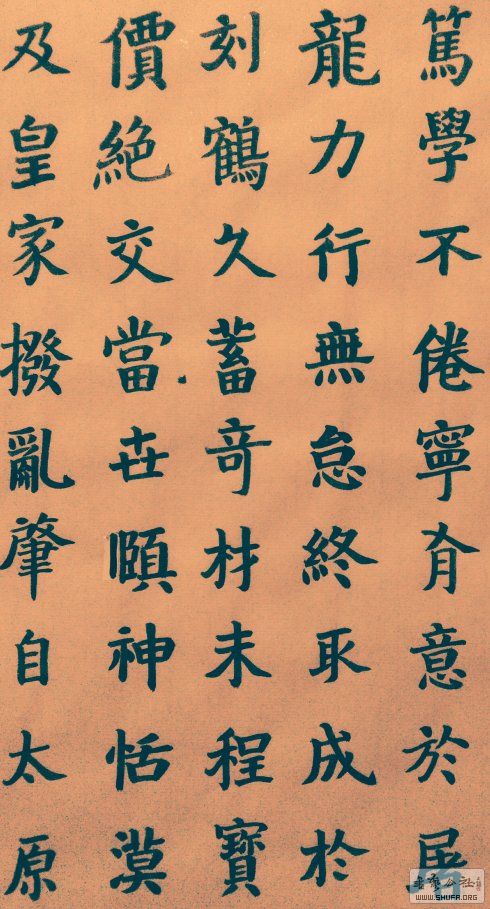 篤學不倦寧有意於屠
龍力行無怠終取成於
刻鶴久蓄奇材未程寶
價絕交當世頤神恬漠
及皇家撥亂肇自太原
WWW.SHUFA.ORG